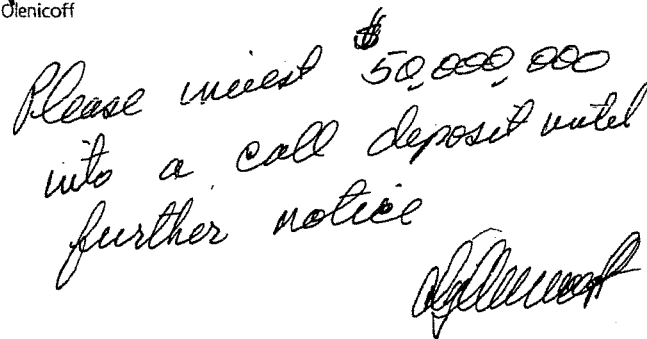 Olenicoff
Please invest $50,000,000
into a call deposit until
further notice